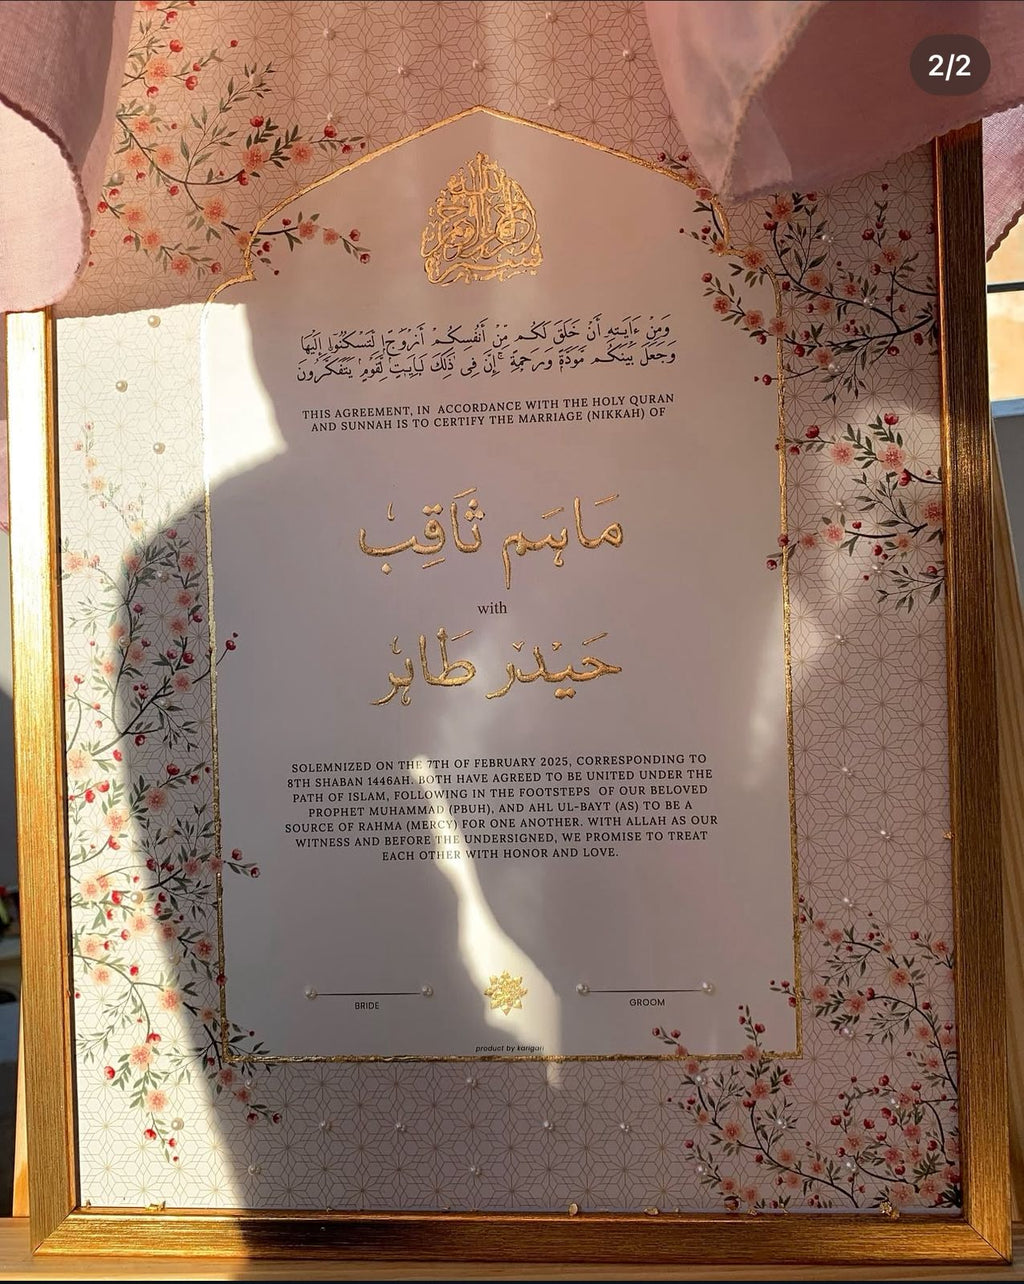 2/2
بسم الله الرحمن الرحيم
وَمِنْ ءَايَـٰتِهِۦٓ أَنْ خَلَقَ لَكُم مِّنْ أَنفُسِكُمْ أَزْوَٰجًا لِّتَسْكُنُوٓا۟ إِلَيْهَا
وَجَعَلَ بَيْنَكُم مَّوَدَّةً وَرَحْمَةً ۚ إِنَّ فِى ذَٰلِكَ لَـَٔايَـٰتٍ لِّقَوْمٍ يَتَفَكَّرُونَ
THIS AGREEMENT, IN ACCORDANCE WITH THE HOLY QURAN
AND SUNNAH IS TO CERTIFY THE MARRIAGE (NIKKAH) OF
مَاہَم ثَاقِب
with
حَیدَر طَاہر
SOLEMNIZED ON THE 7TH OF FEBRUARY 2025, CORRESPONDING TO
8TH SHABAN 1446AH. BOTH HAVE AGREED TO BE UNITED UNDER THE
PATH OF ISLAM, FOLLOWING IN THE FOOTSTEPS OF OUR BELOVED
PROPHET MUHAMMAD (PBUH), AND AHL UL-BAYT (AS) TO BE A
SOURCE OF RAHMA (MERCY) FOR ONE ANOTHER. WITH ALLAH AS OUR
WITNESS AND BEFORE THE UNDERSIGNED, WE PROMISE TO TREAT
EACH OTHER WITH HONOR AND LOVE.
BRIDE
GROOM
product by karigari